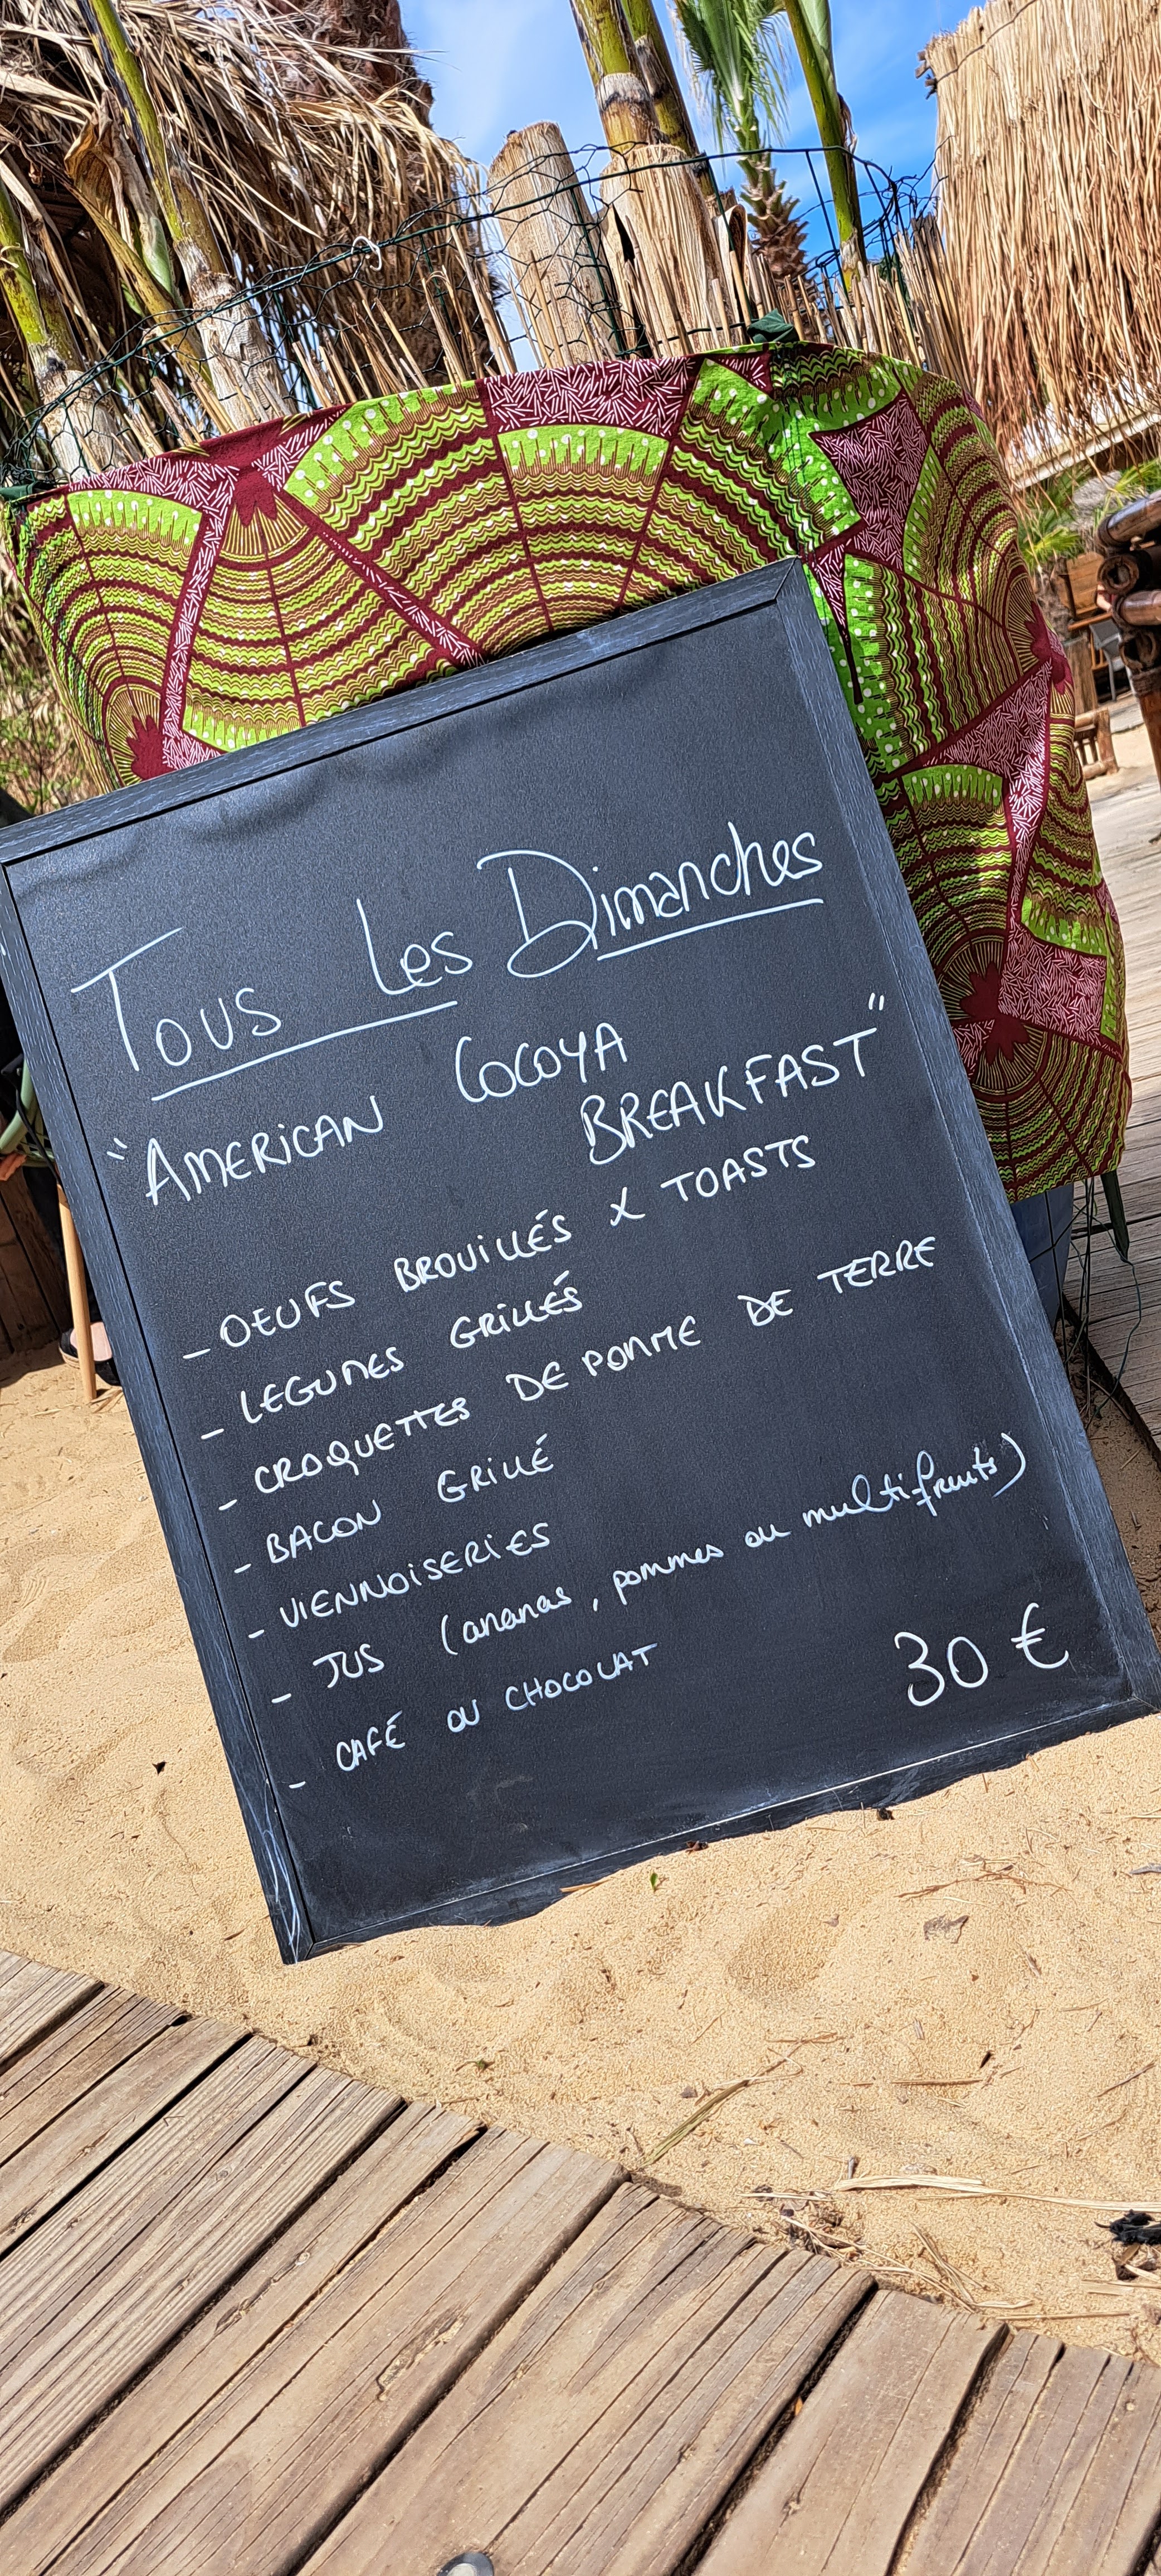 Tous Les Dimanches
"AMERICAN COCOYA
BREAKFAST"
- OEUFS BROUILLÉS X TOASTS
- LEGUMES GRILLÉS
- CROQUETTES DE POMME DE TERRE
- BACON GRILLÉ
- VIENNOISERIES
- JUS (ananas, pommes ou multifruits)
- CAFÉ OU CHOCOLAT
30 €